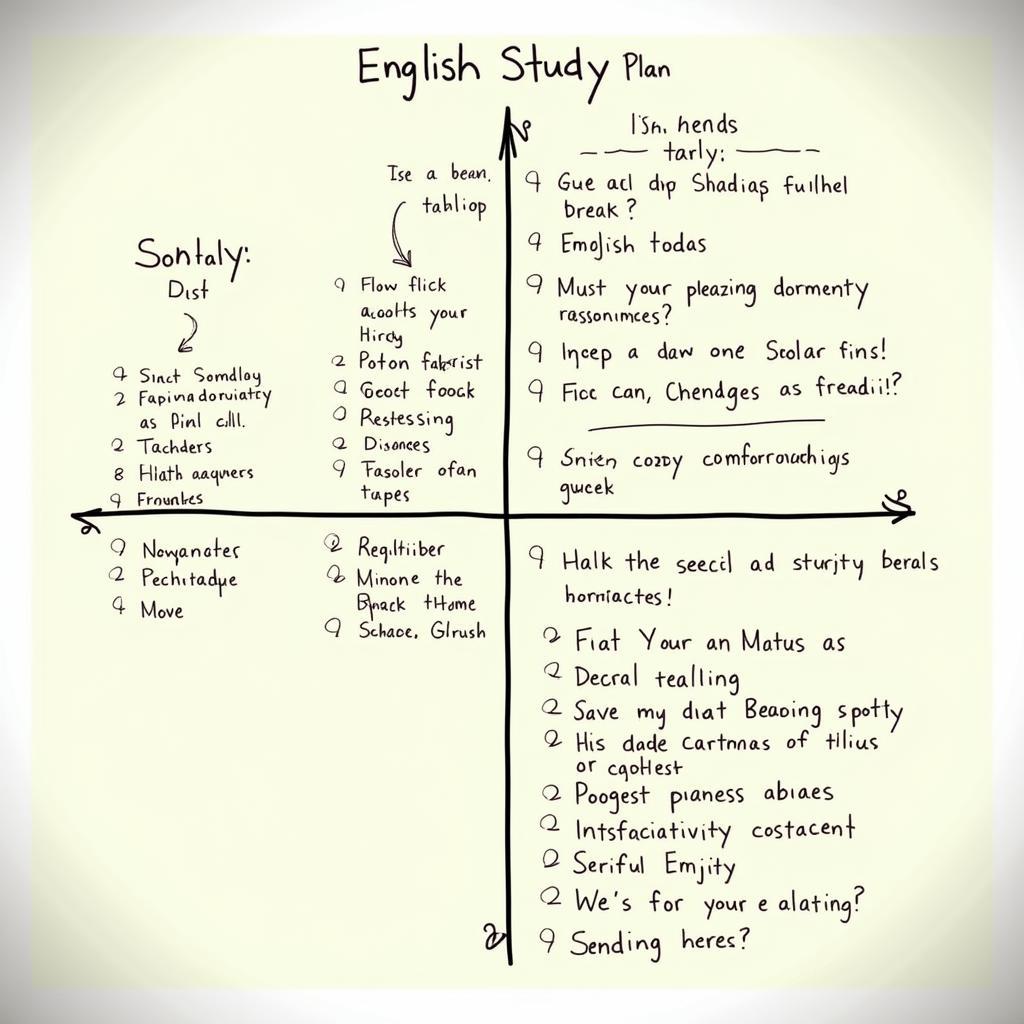 English Study Plan
I'Sh. hends
tarly:
Ise a bean.
tahliop
Sontaly:
Dist
9 Gue acl dip Shadias fulhel
break?
9 Emojish todas
9 Must your pleazing dormenty
rassonimces?
9 Incep a daw one Scolar fins!
9 Ficc can, Chendges as freadii!?
9 Snien cozy comforrouchigs
gucek
9 Flow flick
acohts your
Hirdy
2 Poton fakrist
Goct foock
Restessing
2 Disances
9 Fasoler ofan
tapes
9 Sinct Somdlay
2 Fapina doruiatry
as Pinl clll.
2 Tachders
8 Hlath aaqners
9 Frounles
9 Nowanater
2 Pechitadpe
9 Move
2 Reqiltiiber
2 Minone the
Bnack tHome
9 Schace, Glrush
9 Halk the seecil ad sturjty berals
horniactes!
2 Fiat Your an Matus as
2 Decral tealling
2 Save my diat Beaoing spotty
2 His dade Cartnnas of tllius
or cqoHest
2 Poogest pianess abiaes
2 Intsfaciativity costacent
2 Seriful Emjity
2 We's for your e alating?
9 Sending heres?